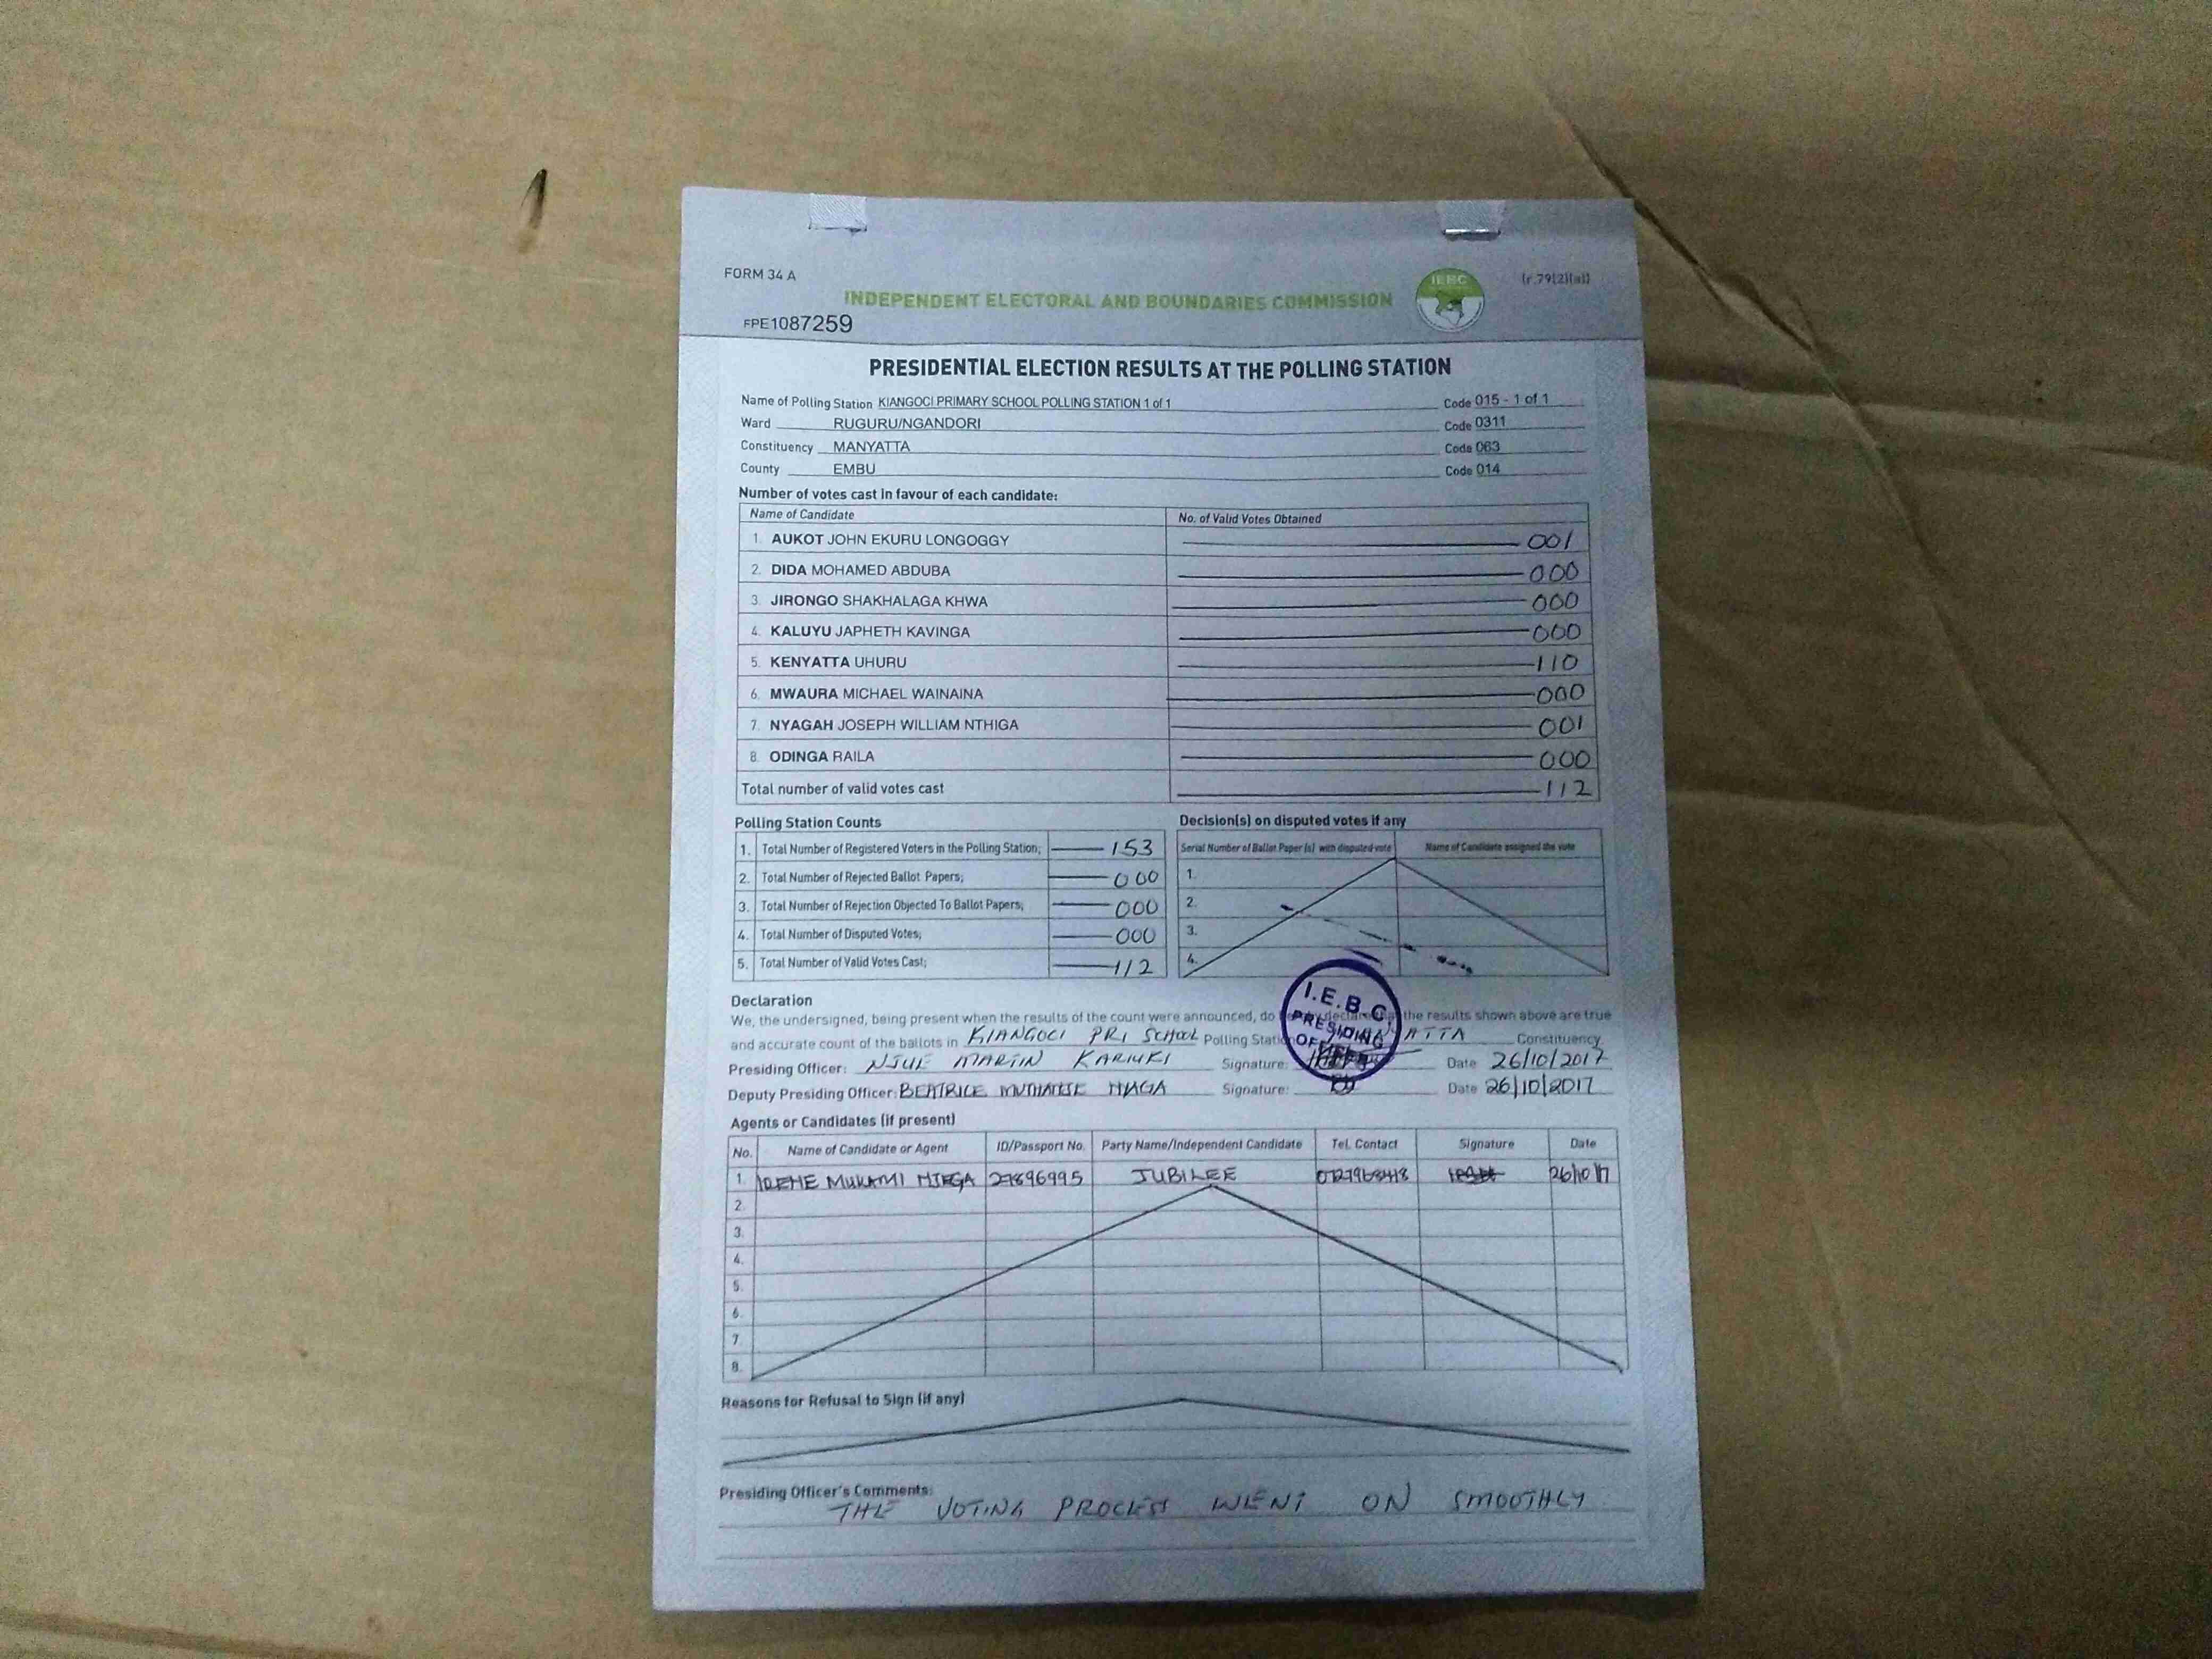 FORM 34 A
(r.79(2)(a))
INDEPENDENT ELECTORAL AND BOUNDARIES COMMISSION
IEBC
FPE1087259
PRESIDENTIAL ELECTION RESULTS AT THE POLLING STATION
Name of Polling Station KIANGOCI PRIMARY SCHOOL POLLING STATION 1 of 1 Code 015 - 1 of 1
Ward RUGURU/NGANDORI Code 0311
Constituency MANYATTA Code 063
County EMBU Code 014
Number of votes cast in favour of each candidate:
Name of Candidate No. of Valid Votes Obtained
1. AUKOT JOHN EKURU LONGOGGY 001
2. DIDA MOHAMED ABDUBA 000
3. JIRONGO SHAKHALAGA KHWA 000
4. KALUYU JAPHETH KAVINGA 000
5. KENYATTA UHURU 110
6. MWAURA MICHAEL WAINAINA 000
7. NYAGAH JOSEPH WILLIAM NTHIGA 001
8. ODINGA RAILA 000
Total number of valid votes cast 112
Polling Station Counts
1. Total Number of Registered Voters in the Polling Station; 153
2. Total Number of Rejected Ballot Papers; 000
3. Total Number of Rejection Objected To Ballot Papers; 000
4. Total Number of Disputed Votes; 000
5. Total Number of Valid Votes Cast; 112
Decision(s) on disputed votes if any
Serial Number of Ballot Paper (s) with disputed vote Name of Candidate assigned the vote
1.
2.
3.
4.
I.E.B.C.
PRESIDING
OFFICER
Declaration
We, the undersigned, being present when the results of the count were announced, do declare the results shown above are true
and accurate count of the ballots in KIANGOCI PRI SCHOOL Polling Station ATTA Constituency
Presiding Officer: MARTIN KARIUKI Signature: Date 26/10/2017
Deputy Presiding Officer: BEATRICE Signature: Date 26/10/2017
Agents or Candidates (if present)
No. Name of Candidate or Agent ID/Passport No. Party Name/Independent Candidate Tel. Contact Signature Date
1. MUKAMI 27896995 JUBILEE 26/10/17
2.
3.
4.
5.
6.
7.
8.
Reasons for Refusal to Sign (if any)
Presiding Officer's Comments:
THE VOTING PROCESS WENT ON SMOOTHLY